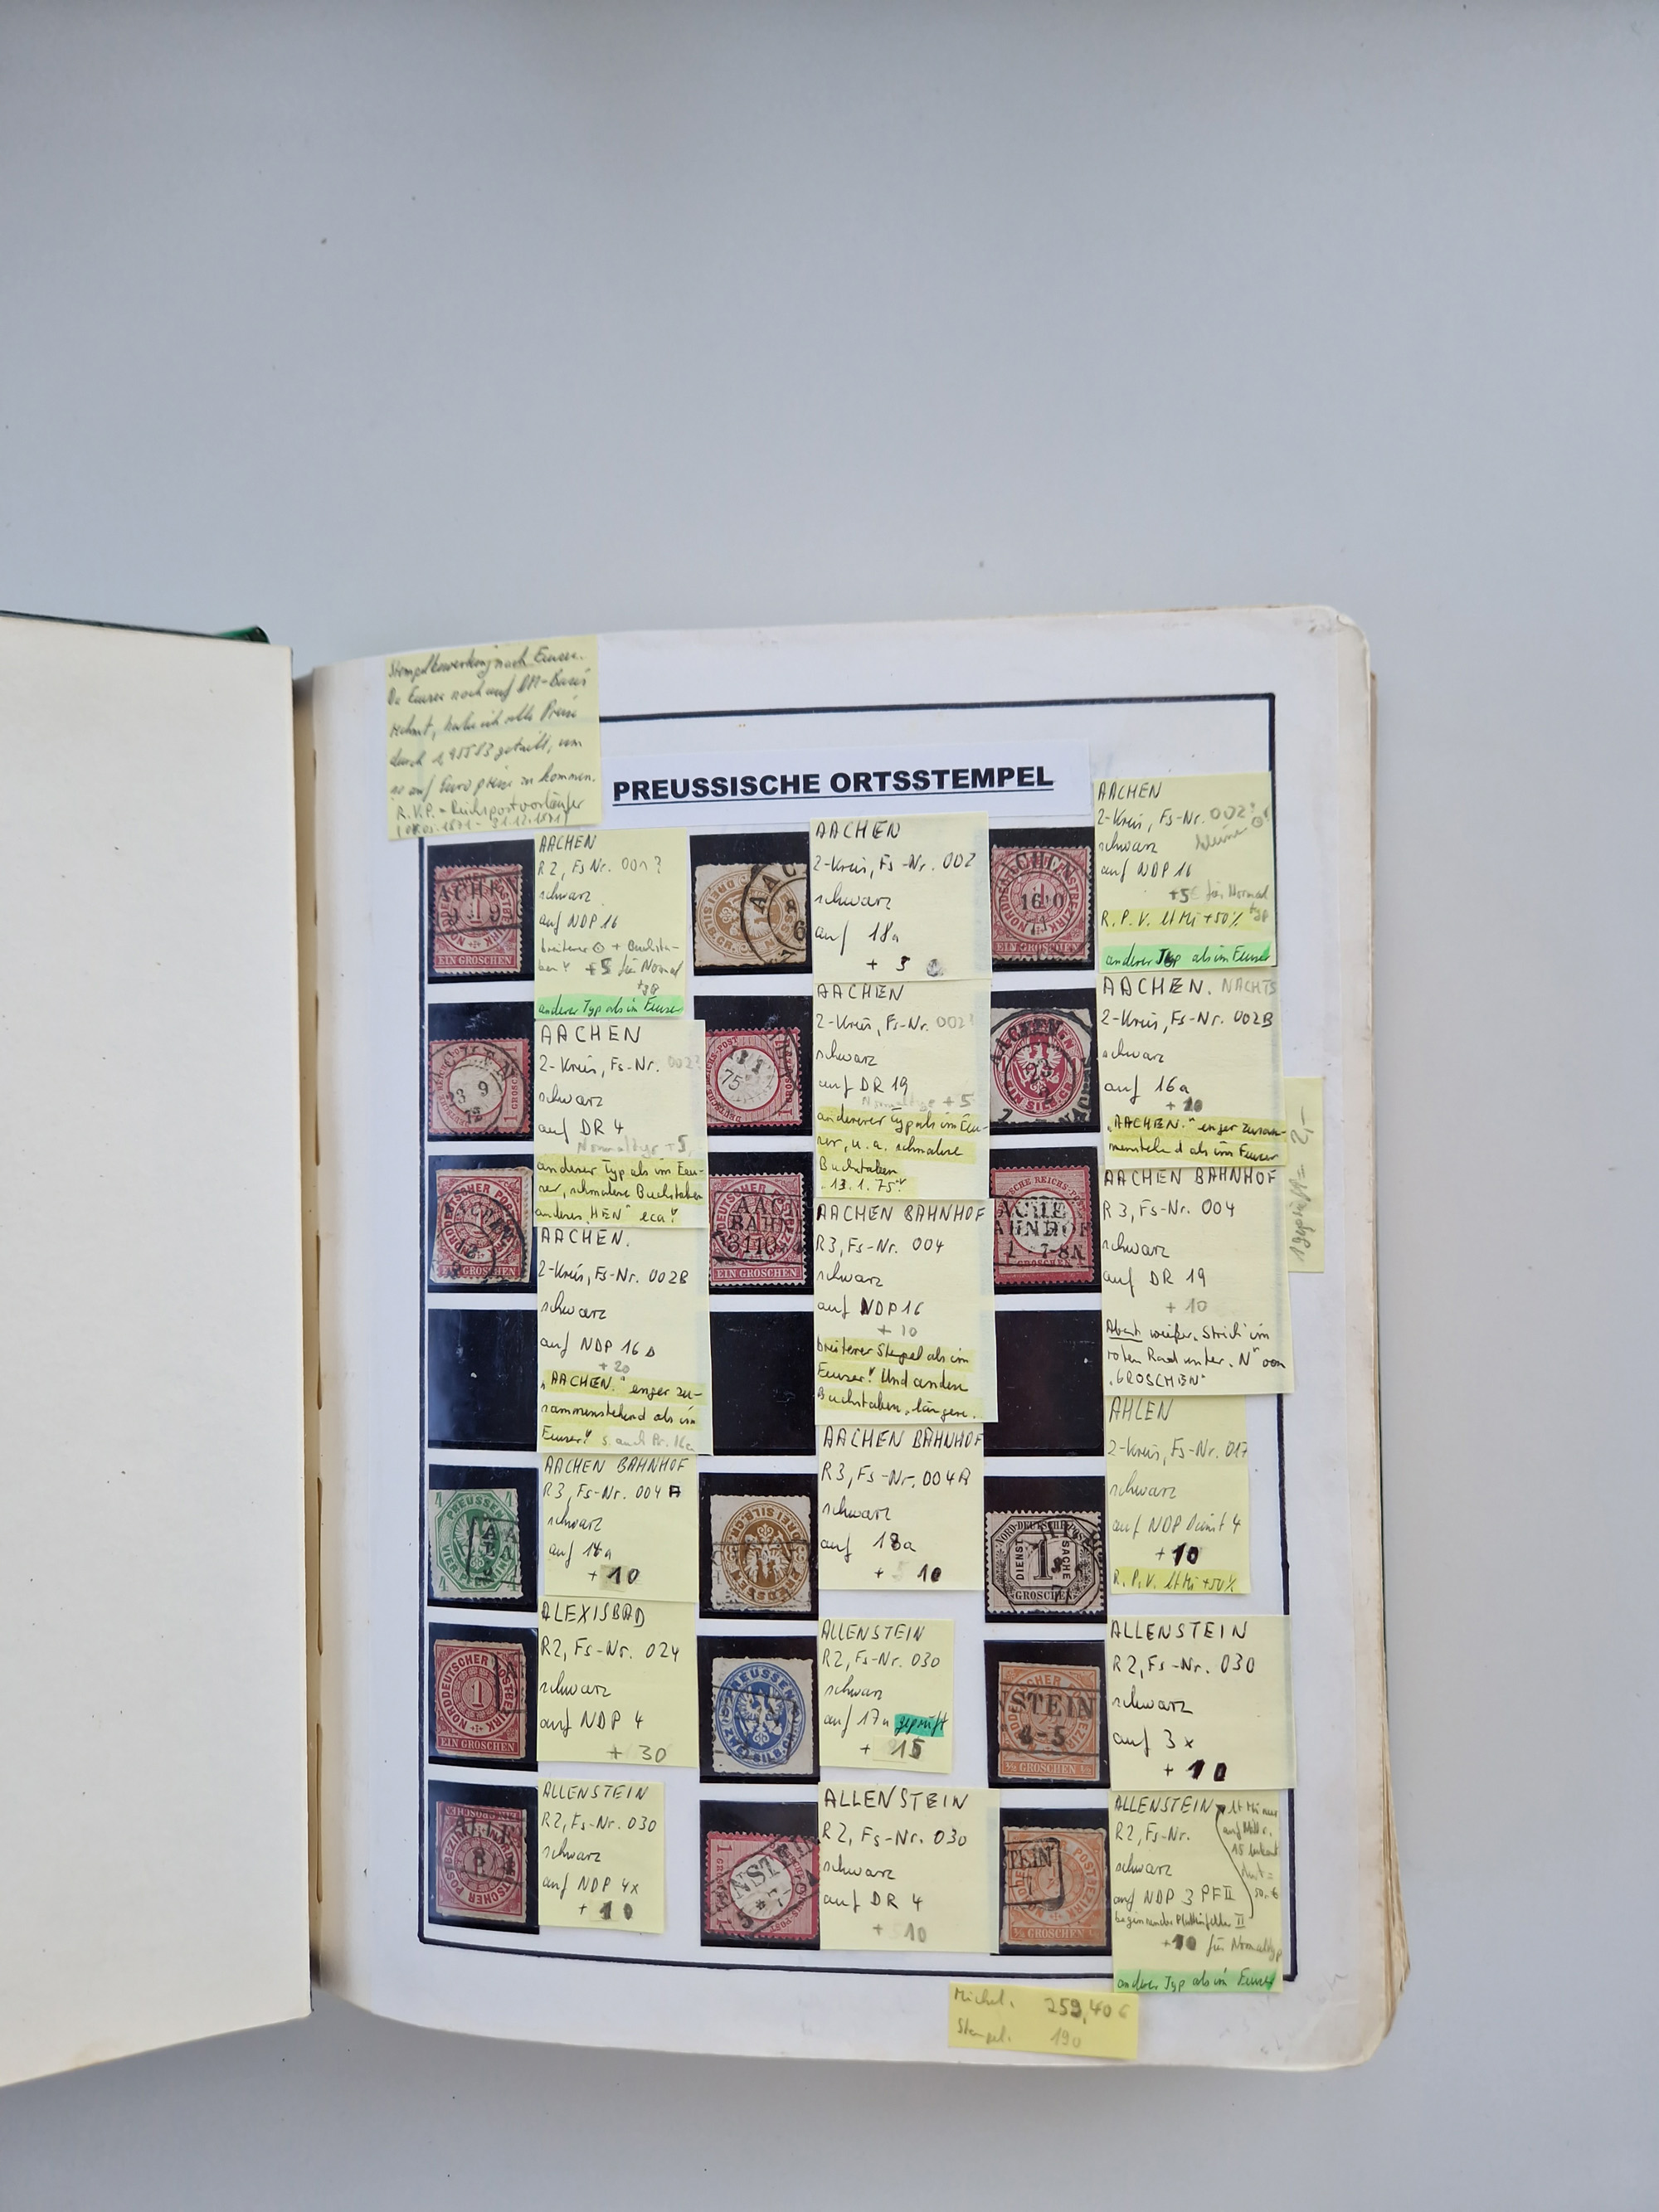 Stempelbewertung nach Feuser.
Da Feuser noch auf DM-Basis
rechnet, habe ich alle Preise
durch 1,95583 geteilt, um
so auf Europreise zu kommen.
R.V.P. = Reichspostvorläufer
31.12.1871)
PREUSSISCHE ORTSSTEMPEL
AACHEN
R2, Fs-Nr. 001?
schwarz
auf NDP 16
breiterer + Buchsta-
ben! +5 für Normal
typ
anderer Typ als im Feuser
AACHEN
2-Kreis, Fs-Nr. 002
schwarz
auf 18a
+ 5
AACHEN
2-Kreis, Fs-Nr. 002?
schwarz
auf NDP 16
+5€ für Normal
typ
R.P.V. lt Mi +50%
anderer Typ als im Feuser
AACHEN
2-Kreis, Fs-Nr. 002?
schwarz
auf DR 4
Normaltyp +5
anderer Typ als im Feu-
ser, schmalere Buchstaben
anderes "HEN"
AACHEN
2-Kreis, Fs-Nr. 002?
schwarz
auf DR 19
Normaltyp +5
andererer Typ als im Feu-
ser, u.a. schmalere
Buchstaben
"13.1.75"
AACHEN. NACHTS
2-Kreis, Fs-Nr. 002B
schwarz
auf 16a
+ 20
"AACHEN." enger zusam-
menstehend als im Feuser
1 geprüft = 2,-
AACHEN.
2-Kreis, Fs-Nr. 002B
schwarz
auf NDP 16
+ 20
"AACHEN." enger zu-
sammenstehend als im
Feuser! s. auch Pr. 16a
AACHEN BAHNHOF
R3, Fs-Nr. 004
schwarz
auf NDP 16
+ 10
breiterer Stempel als im
Feuser! Und andere
Buchstaben, längere.
AACHEN BAHNHOF
R3, Fs-Nr. 004
schwarz
auf DR 19
+ 10
Abart weißer Strich im
roten Rand unter "N" von
"GROSCHEN"
AACHEN BAHNHOF
R3, Fs-Nr. 004A
schwarz
auf 14a
+ 10
AACHEN BAHNHOF
R3, Fs-Nr. 004A
schwarz
auf 18a
+ 10
AHLEN
2-Kreis, Fs-Nr. 017
schwarz
auf NDP Dienst 4
+10
R.P.V. lt Mi +50%
ALEXISBAD
R2, Fs-Nr. 024
schwarz
auf NDP 4
+ 30
ALLENSTEIN
R2, Fs-Nr. 030
schwarz
auf 17a geprüft
+ 15
ALLENSTEIN
R2, Fs-Nr. 030
schwarz
auf 3x
+ 10
ALLENSTEIN
R2, Fs-Nr. 030
schwarz
auf NDP 4x
+ 10
ALLENSTEIN
R2, Fs-Nr. 030
schwarz
auf DR 4
+ 10
ALLENSTEIN lt Mi nur
auf
15 bekannt
R2, Fs-Nr.
schwarz
auf NDP 3 PF II
beginnender Plattenfehler II
+10 für Normaltyp
anderer Typ als im Feuser
Michel: 259,40€
Stempel: 190